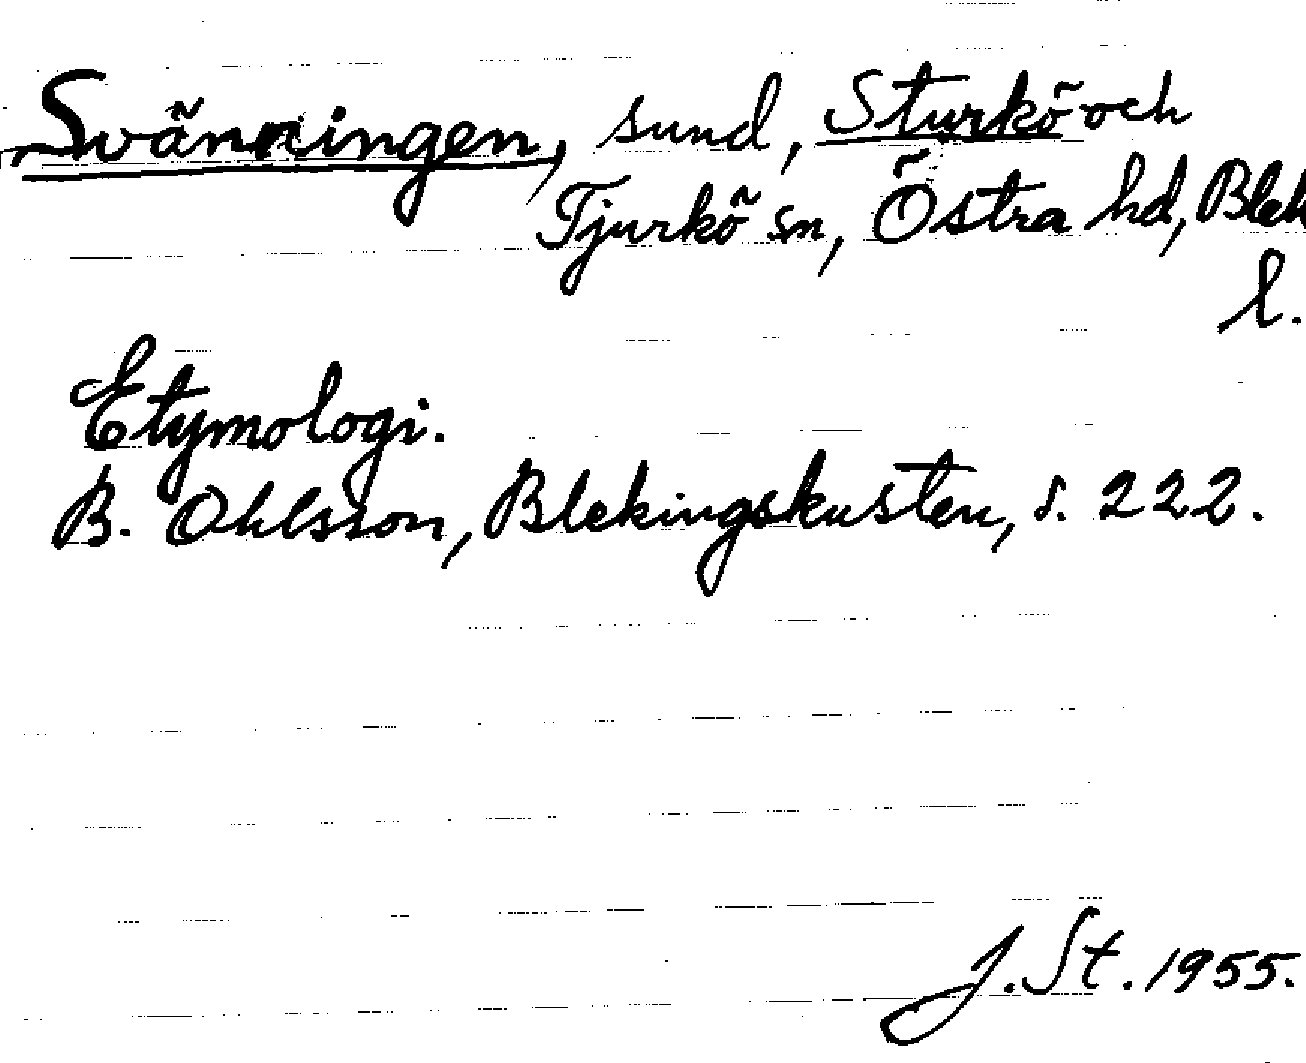 Svänningen, sund, Sturkö och
Tjurkö sn, Östra hd, Blek
l.
Etymologi.
B. Ohlsson, Blekingskusten, s. 222.
J. St. 1955.